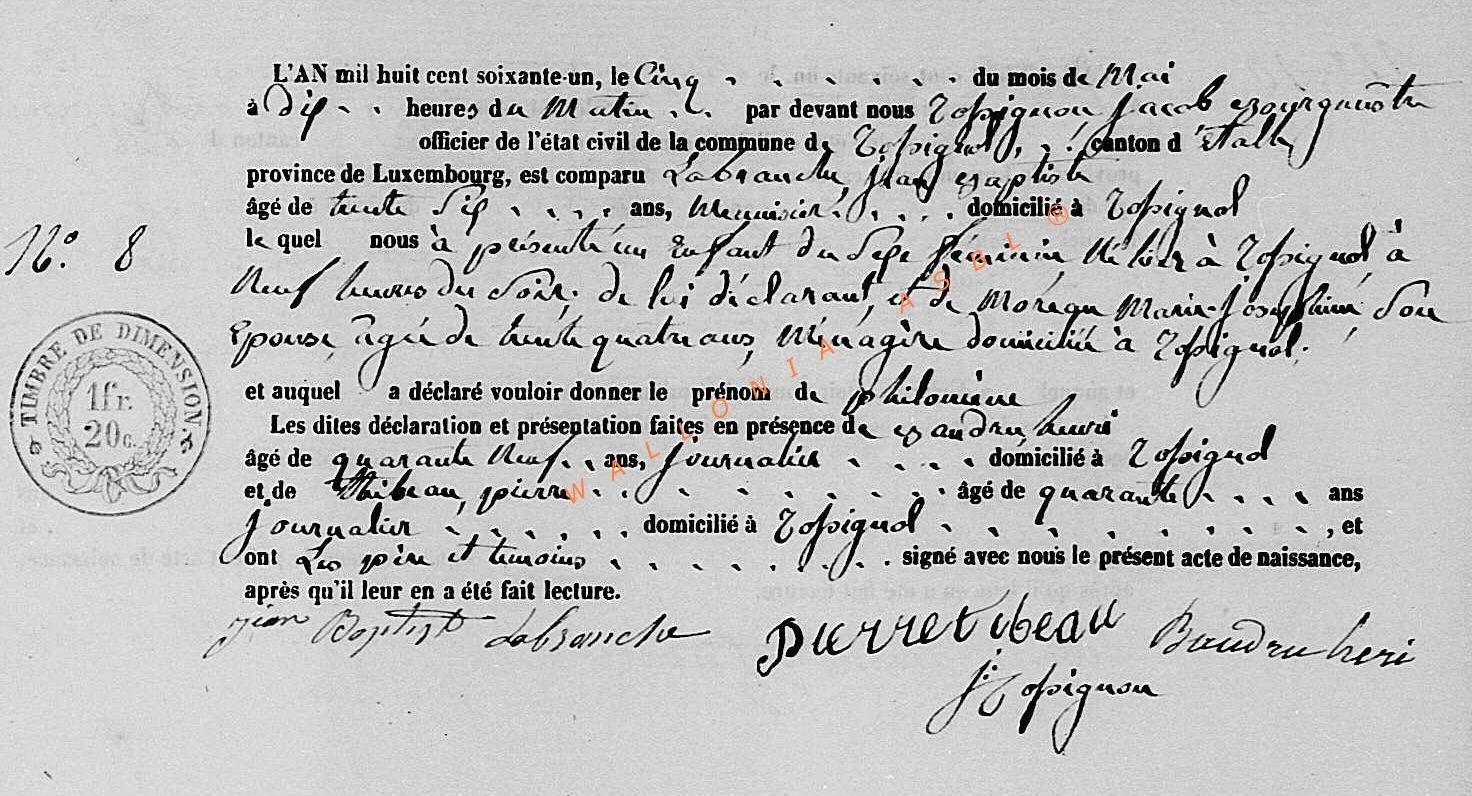 L'AN mil huit cent soixante-un, le Cinq du mois de Mai
à Dix heures du Matin par devant nous Rossignon Jacob Bourguestre
officier de l'état civil de la commune de Rossignol, canton d'Etalle
province de Luxembourg, est comparu Labranche, Jean Baptiste
âgé de trente Six ans, Menuisier domicilié à Rossignol
N°. 8
le quel nous à présenté un Enfant du Sexe féminin, Né hier à Rossignol, à
Neuf heures du Soir, de lui déclarant, et de Moreau Marie-Josephine, Son
Epouse, âgée de trente quatre ans, Ménagère domiciliée à Rossignol.
et auquel a déclaré vouloir donner le prénom de philomène
Les dites déclaration et présentation faites en présence de Baudru, henri
âgé de quarante Neuf ans, Journalier domicilié à Rossignol
et de Thibeau, pierre âgé de quarante ans
Journalier domicilié à Rossignol, et
ont Les père et temoins signé avec nous le présent acte de naissance,
après qu'il leur en a été fait lecture.
jean Baptist Labranche Pierre tibeau Baudru heri
J: Rossignon
TIMBRE DE DIMENSION
1 fr.
20 c.
WALLONIA ASBL ®